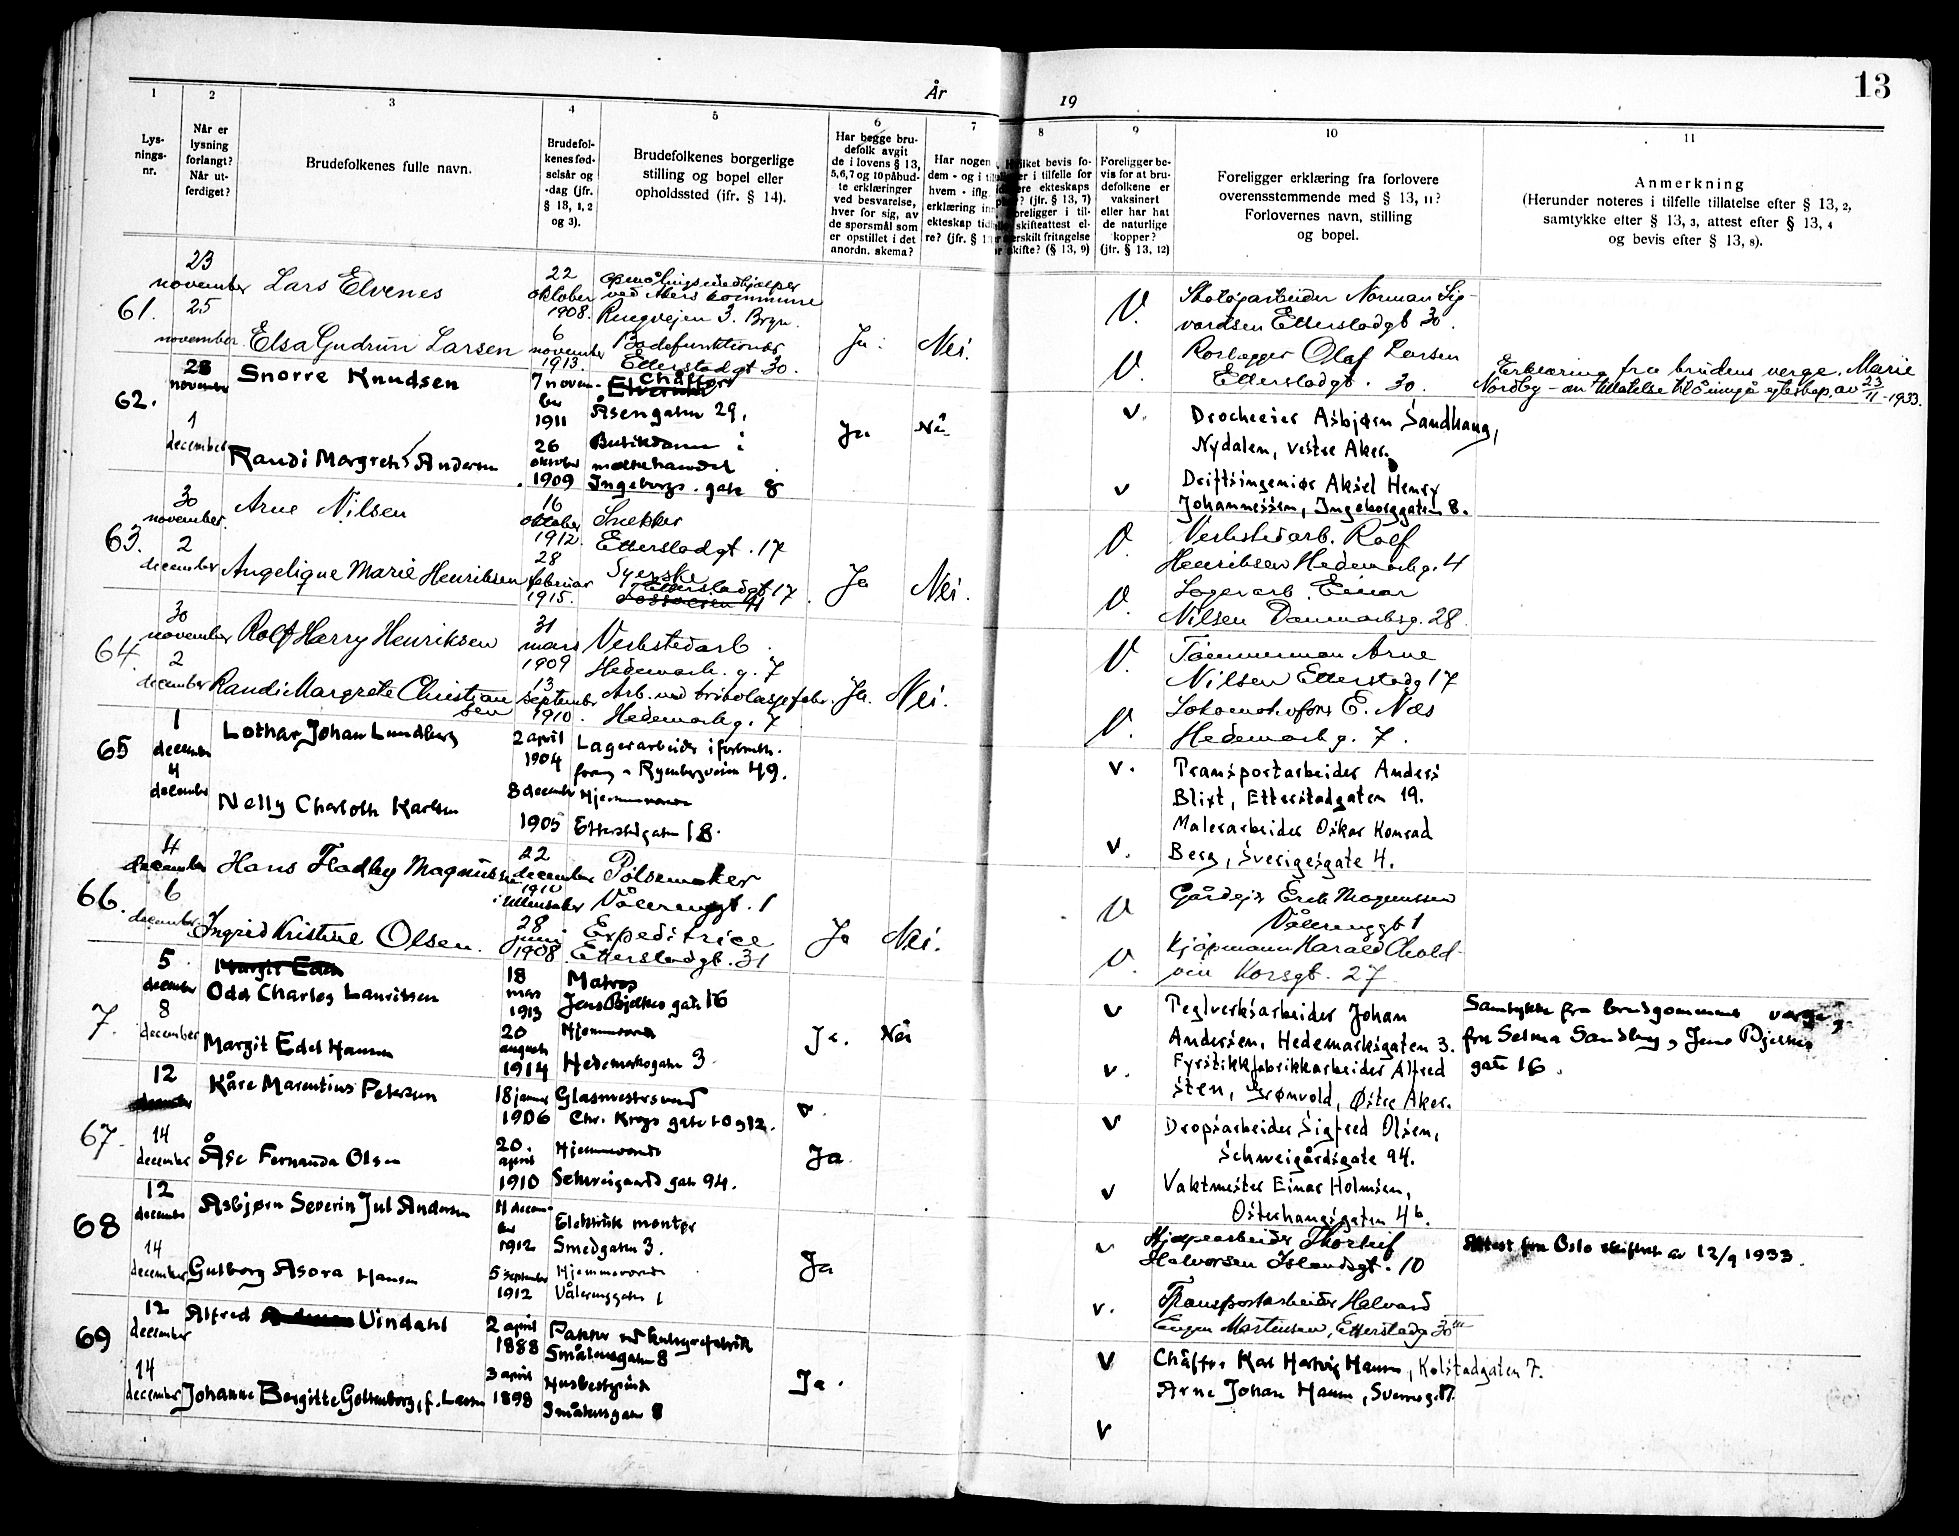 13
År
19
1
2
3
4
5
6
7
8
9
10
11
Lys-
nings-
nr.
Når er
lysning
forlangt?
Når ut-
ferdiget?
Brudefolkenes fulle navn.
Brudefol-
kenes fød-
selsår og
-dag (jfr.
§ 13, 1, 2
og 3).
Brudefolkenes borgerlige
stilling og bopel eller
opholdssted (ifr. § 14).
Har begge bru-
defolk avgit
de i lovens § 13,
5, 6, 7 og 10 påbud-
te erklæringer
ved besvarelse,
hver for sig, av
de spørsmål som
er opstillet i det
anordn. skema?
Har nogen
dem - og i
hvem - iflg.
erklæring
ekteskap
re? (jfr. §
bevis fo-
i tilfelle for
ekteskaps
(jfr. § 13, 7)
foreligger i til-
skifteattest el-
særskilt fritagelse
skifte? (§ 13, 9)
Foreligger be-
vis for at bru-
defolkene er
vaksinert
eller har hat
de naturlige
kopper?
(jfr. § 13, 12)
Foreligger erklæring fra forlovere
overensstemmende med § 13, 11?
Forlovernes navn, stilling
og bopel.
Anmerkning
(Herunder noteres i tilfelle tillatelse efter § 13, 2,
samtykke efter § 13, 3, attest efter § 13, 4
og bevis efter § 13, 8).
61.
23
november
25
november
Lars Elvenes
Elsa Gudrun Larsen
22
oktober
1908.
6
november
1913.
opmålingsmedhjelper
ved Akers kommune
Ringveien 3. Bryn.
Badefunktionær
Etterstadgt 30.
Ja.
Nei.
V.
V.
vardsen Etterstadgt 30.
Rørlegger Olaf Larsen
Etterstadgt. 30.
Erklæring fra brudens verge. Marie
Nordby - om tillatelse til å inngå egteskap, av 23/11-1933.
62.
28
november
1
december
Snorre Knudsen
Randi Margreth Andersen
7 novem-
ber
1911
26
oktober
1909
Chåffør
Åsengaten 29.
Butikdame i
melkehandel
Ingeborgs. gate 8
Ja
Nei
v.
v
Drocheeier Asbjørn Sandhaug,
Nydalen, vestre Aker.
Driftsingeniør Aksel Henry
Johannessen, Ingeborggaten 8.
63.
30
november.
2
december
Arne Nilsen
Angelique Marie Henriksen
16
oktober
1912.
28
februar
1915.
Snekker
Etterstadgt. 17
Syerske
Etterstadgt 17
Ja
Nei.
V.
V.
Verkstedarb. Rolf
Henriksen Hedemarkg. 4
Lagerarb. Einar
Nilsen Danmarksg. 28
64.
30
november
2
december
Rolf Harry Henriksen
Randi Margrete Christian
sen
31
mars
1909
13
september
1910.
Verkstedarb.
Hedemark. g. 7
Arb. ved trikotasjefabr.
Hedemarkg. 7
Ja.
Nei.
V.
V.
Tømmerman Arne
Nilsen Etterstadg 17
Lokomotivfører E. Næs
Hedemarkg. 7.
65
1
december
4
december
Lothar Johan Lundberg
Nelly Charlotte Karlsen
2 april
1904
8 december
1905
Lagerarbeider i forbruks-
foren. Ryenbergveien 49.
Hjemmeværende
Etterstadgaten 18.
v.
v.
Transportarbeider Anders
Blixt, Etterstadgaten 19.
Malerarbeider Oskar Konrad
Berg, Sverigesgate 4.
66.
4
december
6
december
Hans Fladby Magnussen
Ingrid Kristine Olsen.
22
december
1910
i Ullensaker
28
juni
1908
Pølsemaker
Vålerenggt. 1
Expeditrice
Etterstadgt. 31
Ja
Nei.
V
V.
Gårdeier Erik Magnussen
Vålerenggt 1
Kjøpmann Harald Chold-
vin Korsgt. 27
7.
5
december
8
december
Odd Charles Lauritsen
Margit Edel Hansen
18
mars
1913
20
august
1914
Matros
Jens Bjelkes gate 16
Hjemmeværende
Hedemarksgaten 3.
Ja.
Nei
v
v.
Teglverksarbeider Johan
Andersen, Hedemarksgaten 3.
Fyrstikkfabrikkarbeider Alfred
Sten, Grønvold, Østre Aker.
Samtykke fra brudgommens verge,
fru Selma Sandberg, Jens Bjelkes
gate 16.
67.
12
december
14
december
Kåre Marentius Petersen
Åse Fernanda Olsen
18 januar
1906
20.
april
1910
Glasmestersvend
Chr. Krogs gate 10 912.
Hjemmeværende
Schweigaards gate 94.
v.
Ja
v
v
Dropsarbeider Sigfred Olsen,
Schweigårdsgate 94.
Vaktmester Einar Holmsen,
Osterhausgaten 4b.
68
12
december
14
december
Asbjørn Severin Jul Andersen
Gulborg Asora Hansen
11 decem-
ber
1912
5 september
1912
Elektrisk montør
Smedgaten 3.
Hjemmeværende
Vålerenggaten 1
Ja
v
v.
Hjelpearbeider Thorleif
Halvorsen Islandsgt. 10
Transportarbeider Halvard
Eugen Mortensen, Etterstadg 30 III
Attest fra Oslo skifteret av 12/9 1933.
69
12
december
14
december
Alfred Vindahl
Johanne Bergitte Goltenborg, f. Larsen
2 april
1888
3 april
1898
Smålensgaten 8
Husbestyrerinde
Smålensgaten 8
Ja.
v
v
Chåffør Karl Hartvig Hansen, Kolstadgaten 7.
Arne Johan Hansen, Sverresg. 17.